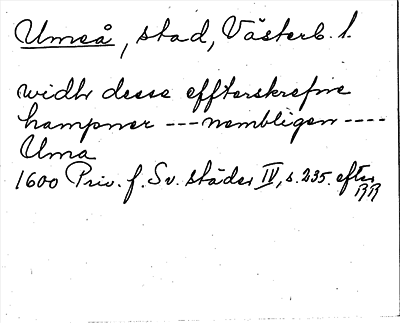 Umeå, stad, Västerb. l.
widhr desse effterskrefne
hampner --- nembligen ----
Uma
1600 Priv. f. Sv. städer IV, s. 235. efter
RR